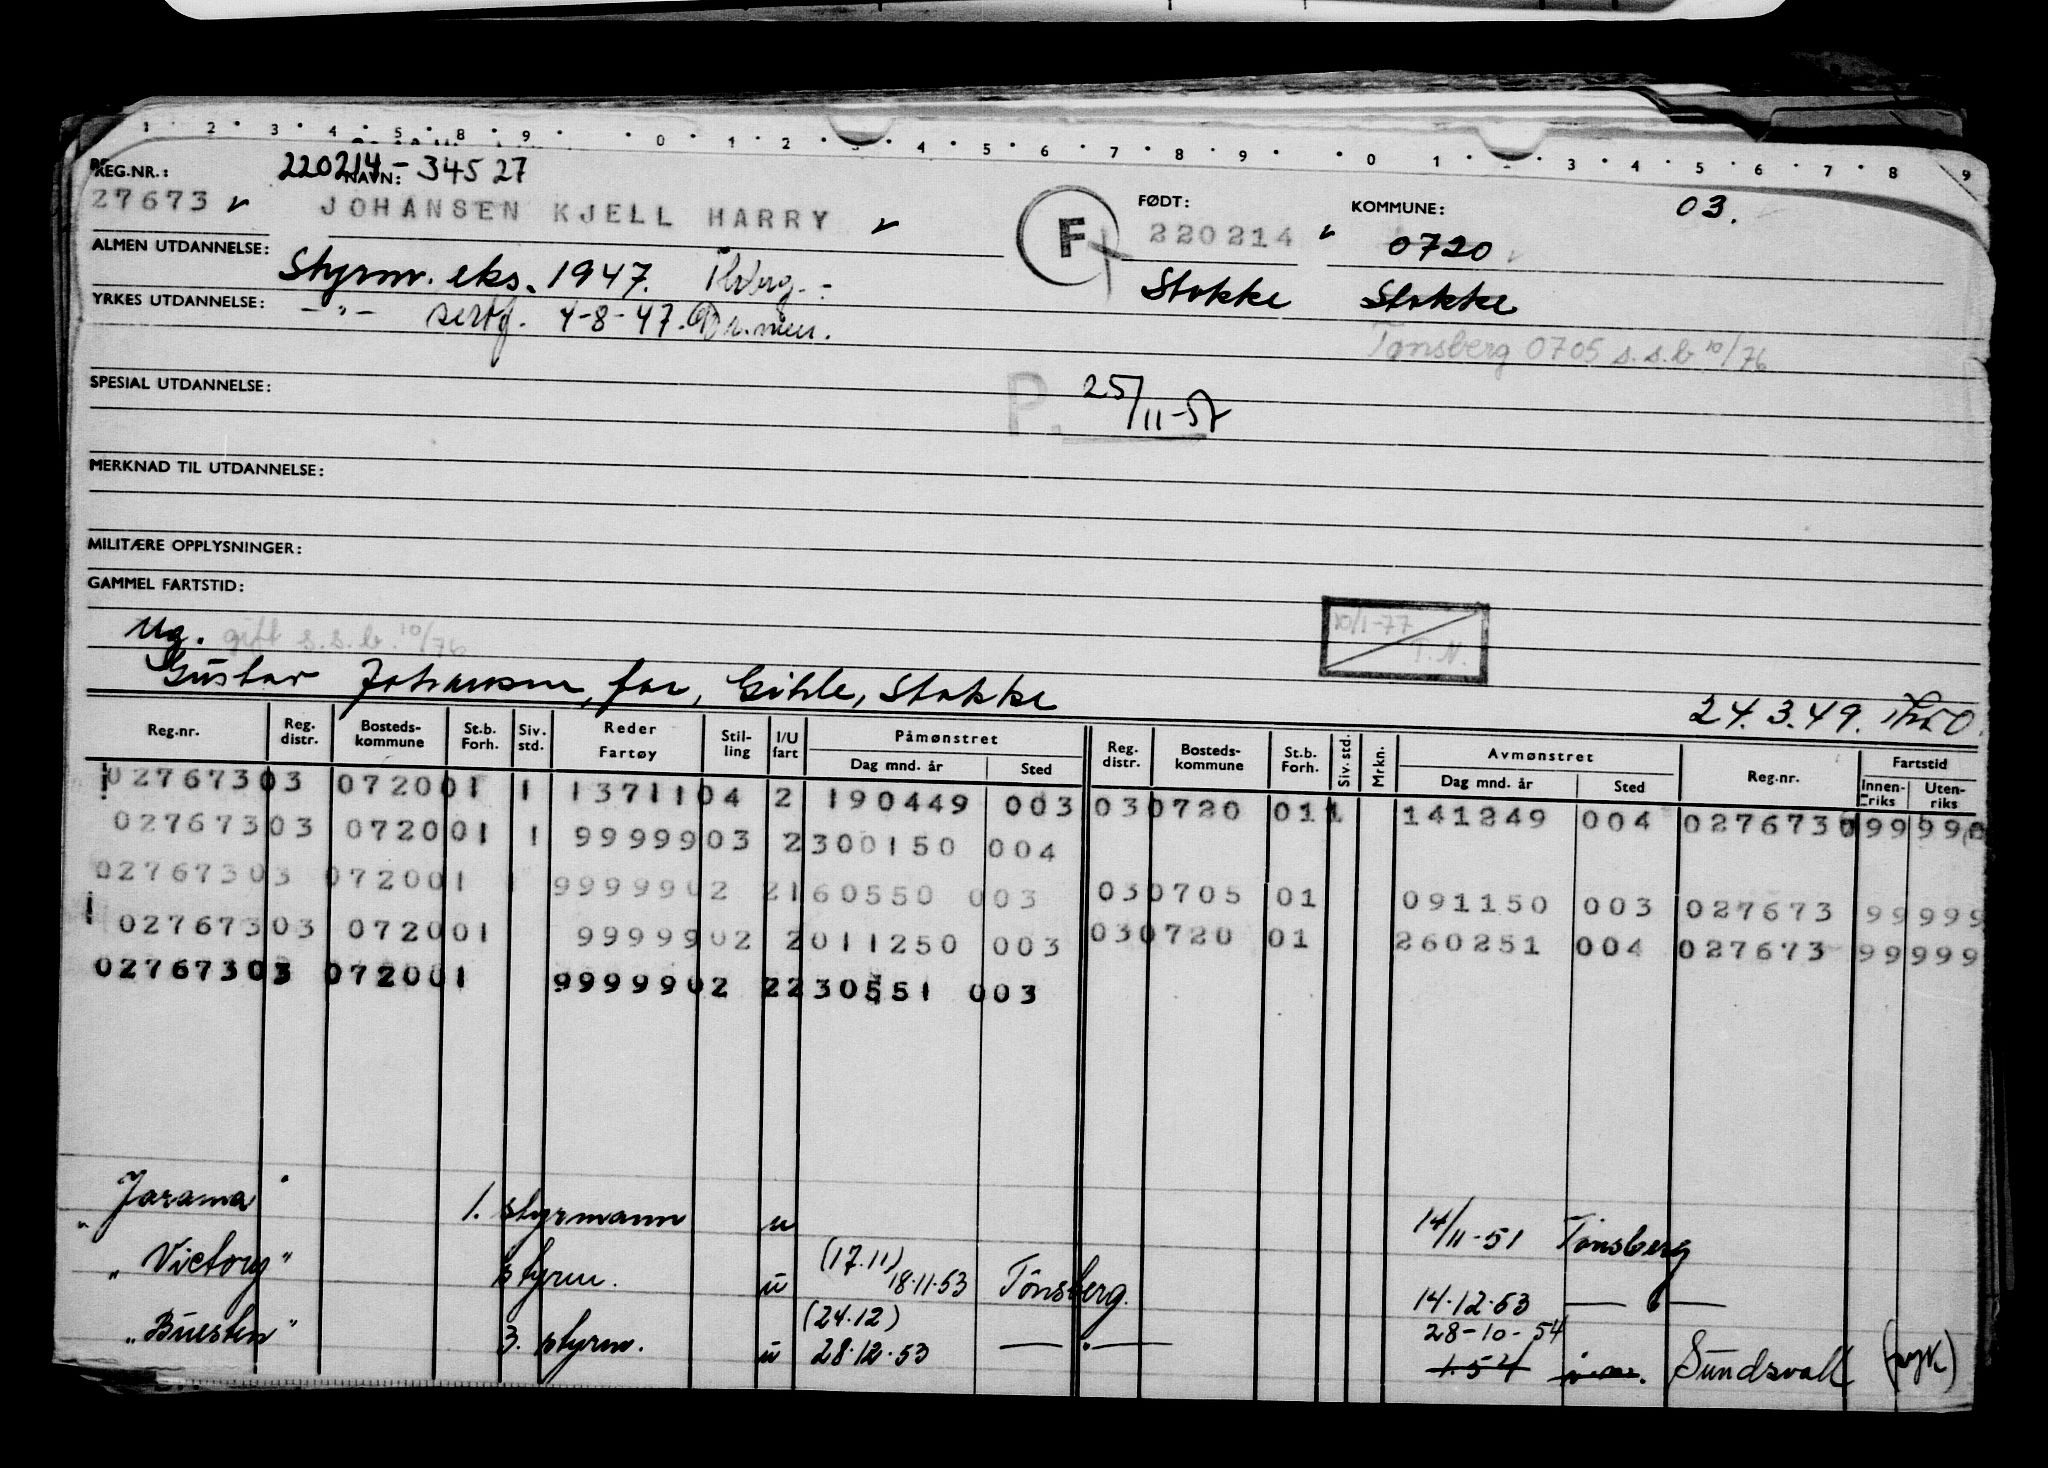 1 2 3 4 5 8 9 0 1 2 4 5 6 7 8 9 0 1 3 4 5 6 7 8 9
REG.NR.: NAVN: 220214-34527
27673 JOHANSEN KJELL HARRY F FØDT: 220214 KOMMUNE: 0720 03.
ALMEN UTDANNELSE: Styrm. eks. 1947. Stokke Stokke
YRKES UTDANNELSE: -"- sertf. 4-8-47. Dr.men.
Tønsberg 0705 s.s.b 10/76
SPESIAL UTDANNELSE: P. 25/11-57
MERKNAD TIL UTDANNELSE:
MILITÆRE OPPLYSNINGER:
GAMMEL FARTSTID:
10/1-77 T.N.
Ug. gift s.s.b. 10/76
Gustav Johansen, far, Gihle, Stokke
24.3.49.
Reg.nr. Reg. distr. Bosteds-kommune St.b. Forh. Siv. std. Reder Fartøy Stil-ling I/U fart Påmønstret Dag mnd. år Sted Reg. distr. Bosteds-kommune St.b. Forh. Siv. std. Mrkn. Avmønstret Dag mnd. år Sted Reg.nr. Fartstid Innen-riks Uten-riks
02767303 072001 1 1371104 2 190449 003 030720 011 141249 004 027673 99999
02767303 072001 1 9999903 2300150 004
02767303 072001 1 9999902 2160550 003 030705 01 091150 003 027673 99999
02767303 072001 9999902 2011250 003 030720 01 260251 004 027673 99999
02767303 072001 9999902 2230551 003
"Jarama" 1. styrmann u 14/11-51 Tønsberg
"Victory" styrm. u (17.11) 18.11.53 Tönsberg. 14.12.53 — " —
"Buesten" 3. styrm. u (24.12) 28.12.53 — " — 28-10-54 1.54 Sundsvall (syk)